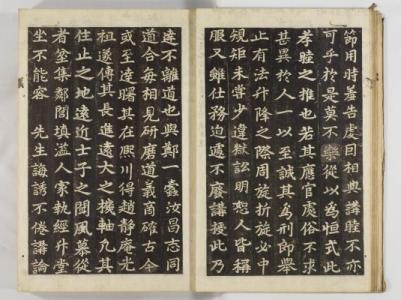 節用時羞告虔曰相與講睦不亦
可乎於是莫不樂從以爲恒式此
孝睦之推也若其應官處俗不求
甚異於人一以至誠其爲刑郞擧
止有法升降之際周旋折旋必中
規矩未嘗少違獄訟明恕人皆稱
服又雖仕務迫遽不廢講授此乃
達不離道也與鄭一蠹汝昌志同
道合每相見硏磨道義商確古今
或至達曙其在熙川得趙靜庵光
祖遂傳其長進遠大之機軸凡其
住止之地遠近士子之聞風慕從
者坌集鄰閭填溢人家執經升堂
坐不能容 先生誨誘不倦講論